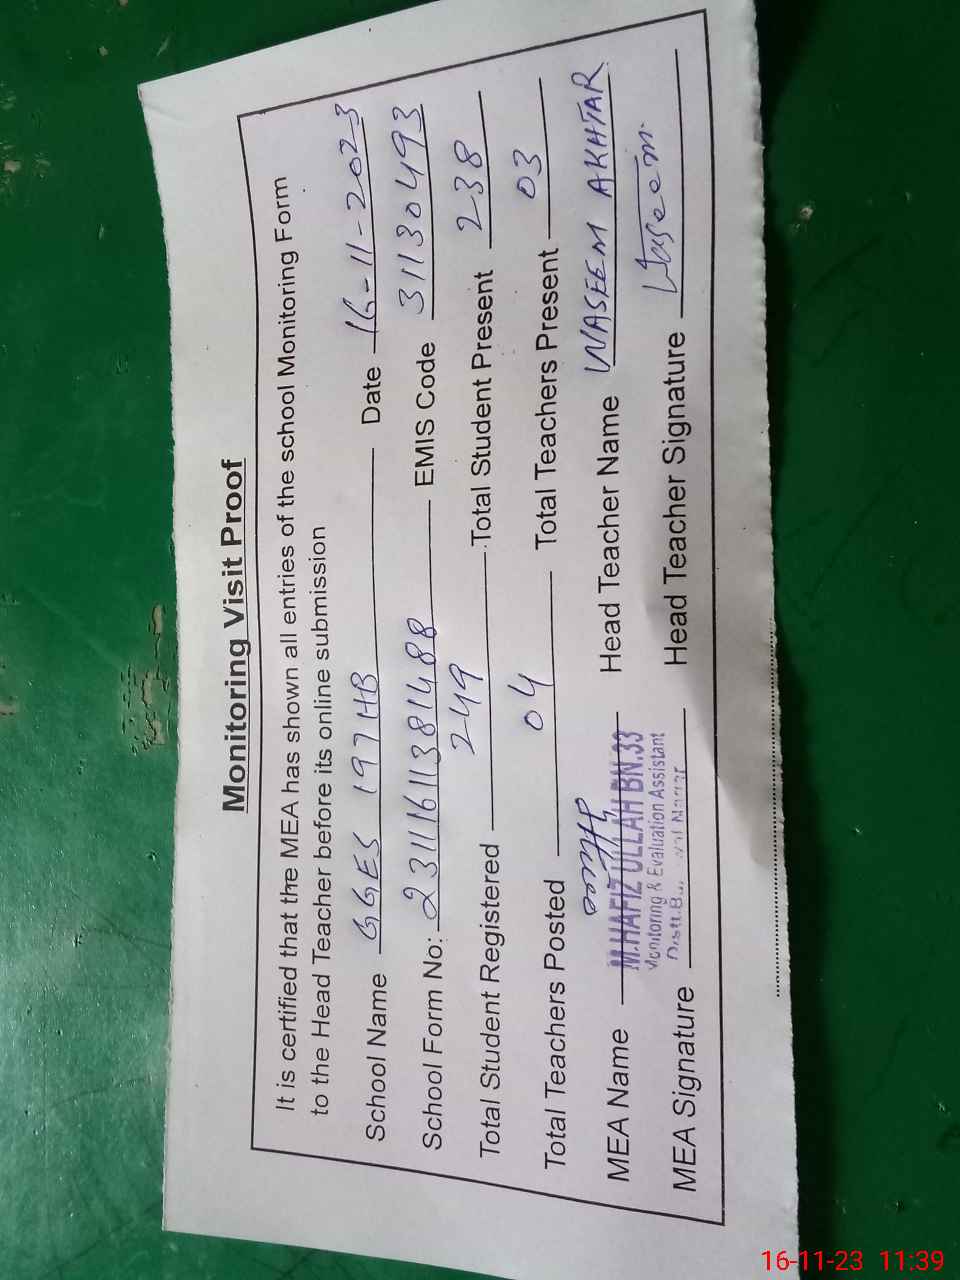 Monitoring Visit Proof
It is certified that the MEA has shown all entries of the school Monitoring Form
to the Head Teacher before its online submission
School Name GGES 197HB Date 16-11-2023
School Form No: 23111611381488 EMIS Code 31130493
Total Student Registered 249 Total Student Present 238
Total Teachers Posted 04 Total Teachers Present 03
MEA Name M.HAFIZ ULLAH BN.33 Head Teacher Name WASEEM AKHTAR
Monitoring & Evaluation Assistant
Distt.
MEA Signature Head Teacher Signature Waseem
16-11-23 11:39